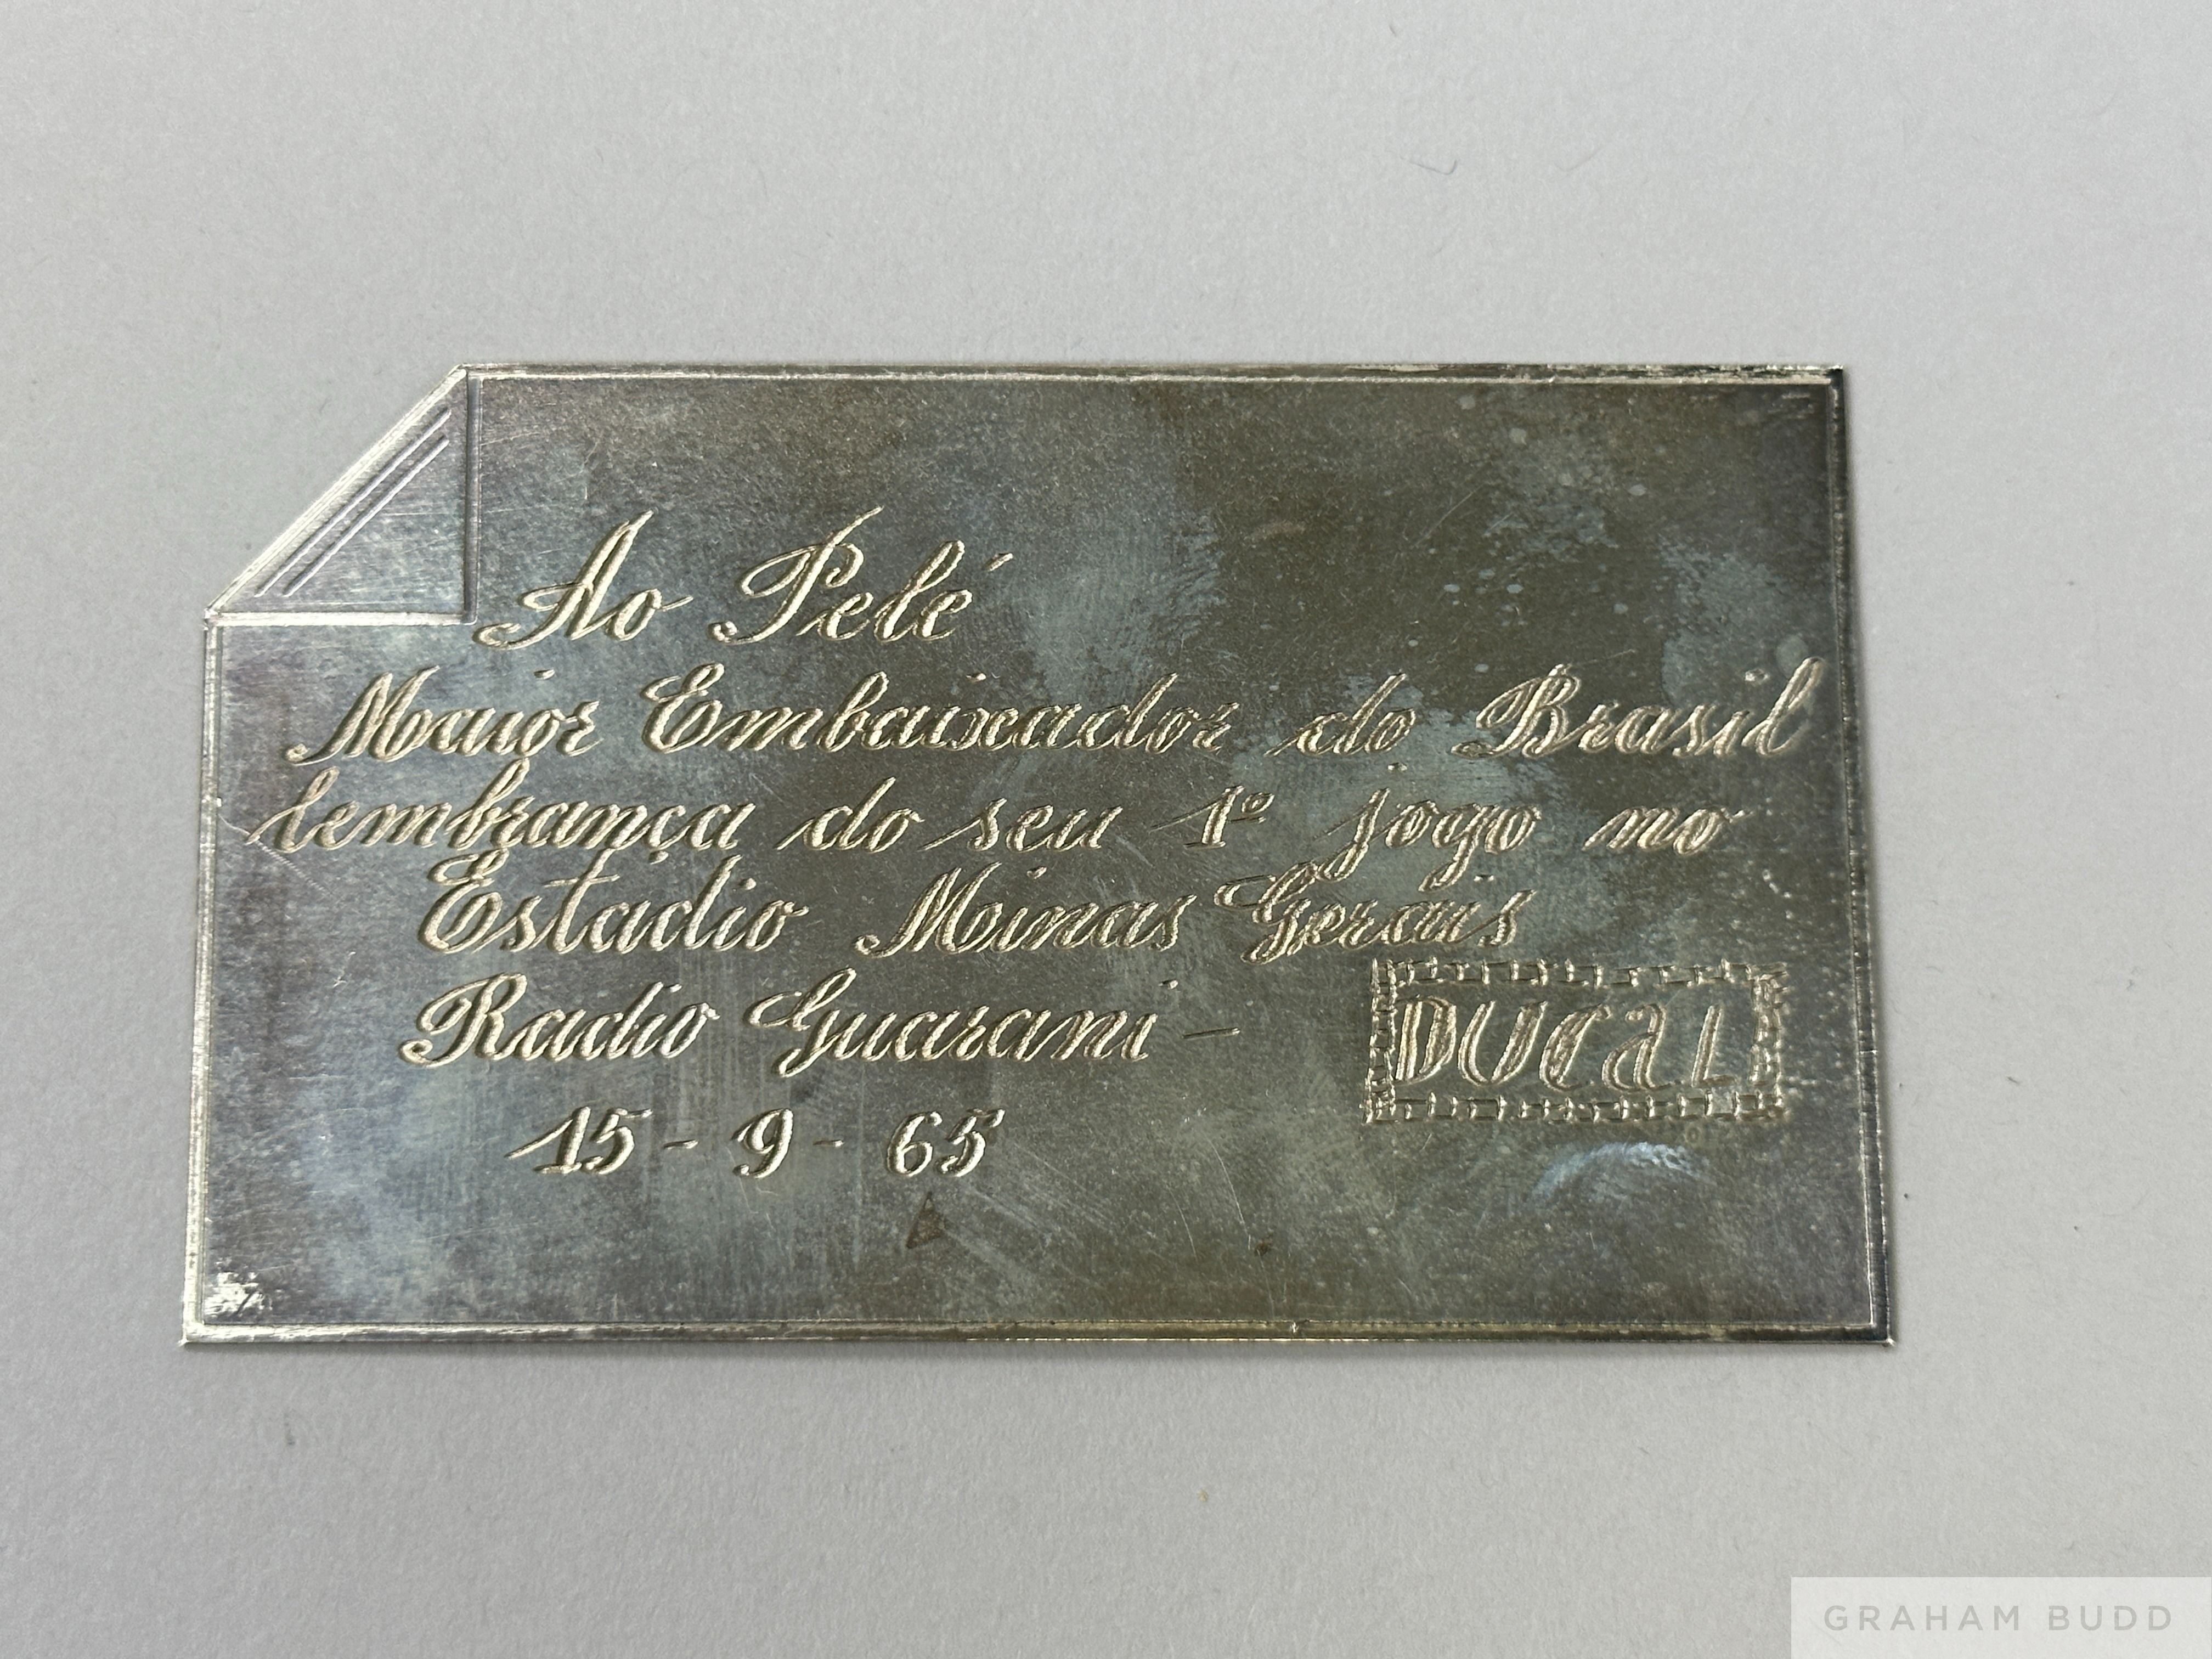 Ao Pelé
Maior Embaixador do Brasil
lembrança do seu 1º jogo no
Estadio Minas Gerais
Radio Guarani - DUCAL
15 - 9 - 65
GRAHAM BUDD